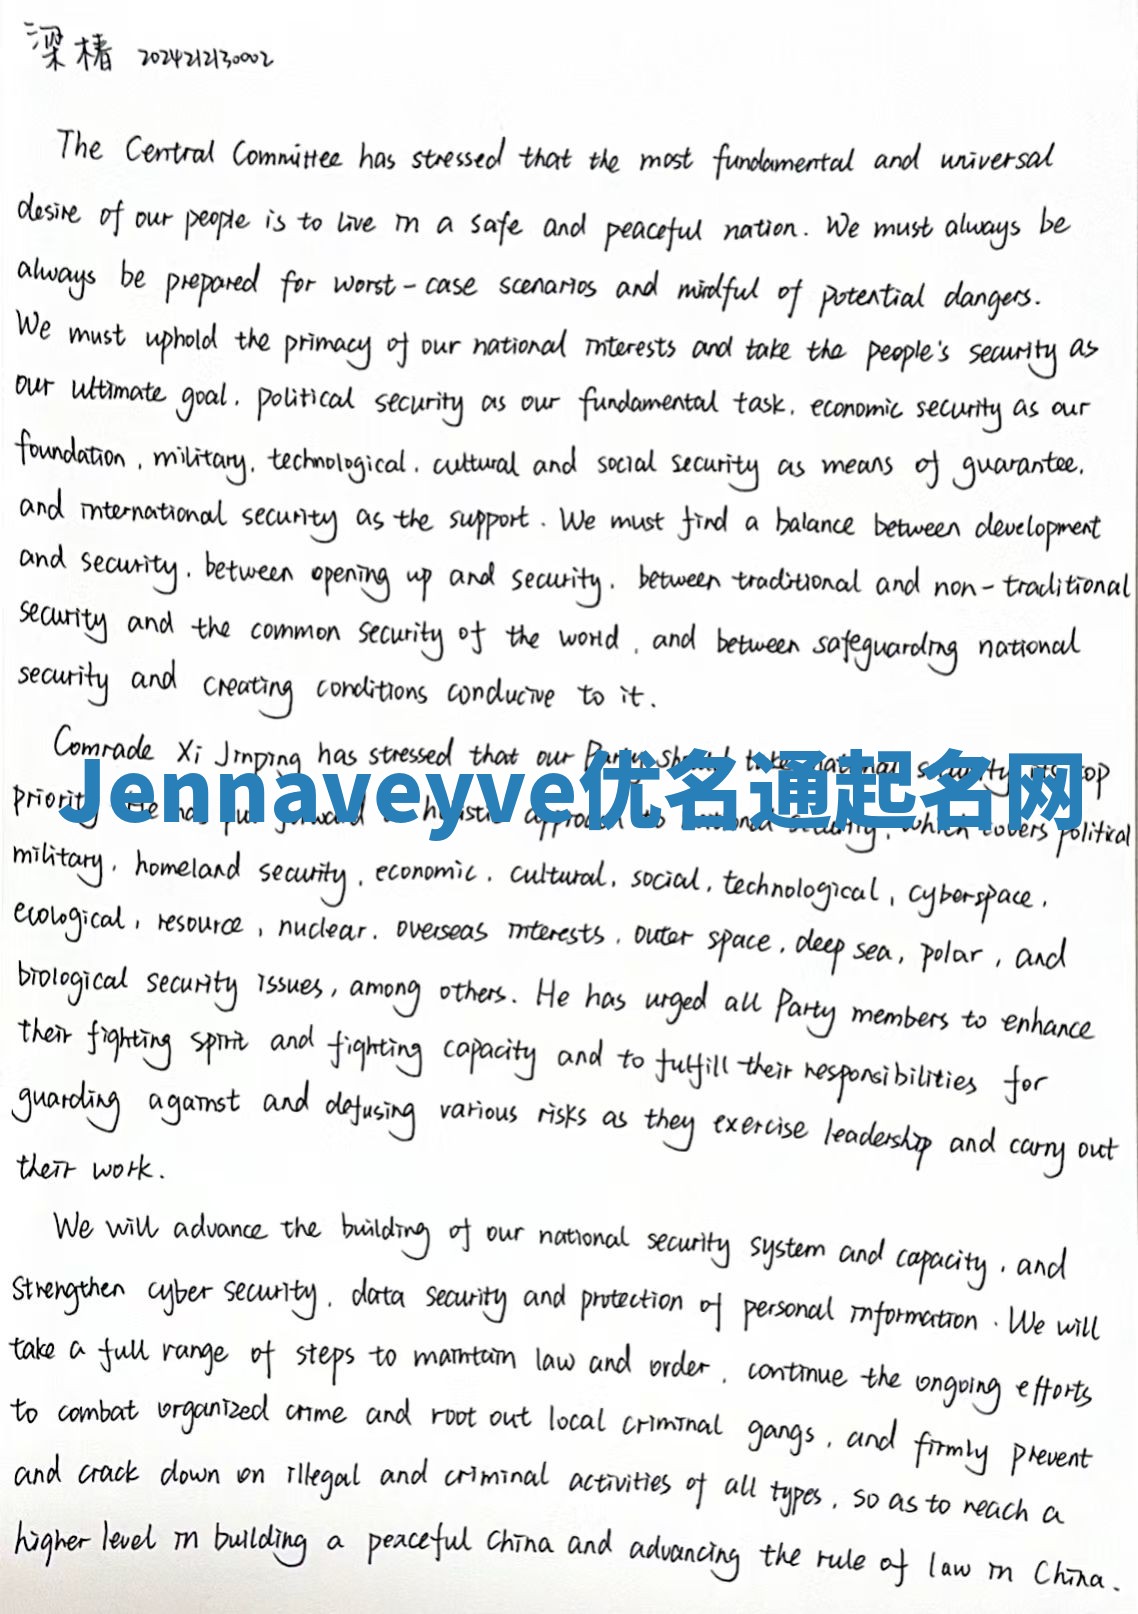 梁椿 2024212130002
The Central Committee has stressed that the most fundamental and universal
desire of our people is to live in a safe and peaceful nation. We must always be
always be prepared for worst-case scenarios and mindful of potential dangers.
We must uphold the primacy of our national interests and take the people's security as
our ultimate goal, political security as our fundamental task, economic security as our
foundation, military, technological, cultural and social security as means of guarantee,
and international security as the support. We must find a balance between development
and security, between opening up and security, between traditional and non-traditional
security and the common security of the world, and between safeguarding national
security and creating conditions conducive to it.
Comrade Xi Jinping has stressed that our Party should take national security its top
Jennaveyve优名通起名网
priority. He has put forward a holistic approach to national security, which covers political
military, homeland security, economic, cultural, social, technological, cyberspace,
ecological, resource, nuclear, overseas interests, outer space, deep sea, polar, and
biological security issues, among others. He has urged all Party members to enhance
their fighting spirit and fighting capacity and to fulfill their responsibilities for
guarding against and defusing various risks as they exercise leadership and carry out
their work.
We will advance the building of our national security system and capacity, and
strengthen cyber security, data security and protection of personal information. We will
take a full range of steps to maintain law and order, continue the ongoing efforts
to combat organized crime and root out local criminal gangs, and firmly prevent
and crack down on illegal and criminal activities of all types, so as to reach a
higher level in building a peaceful China and advancing the rule of law in China.